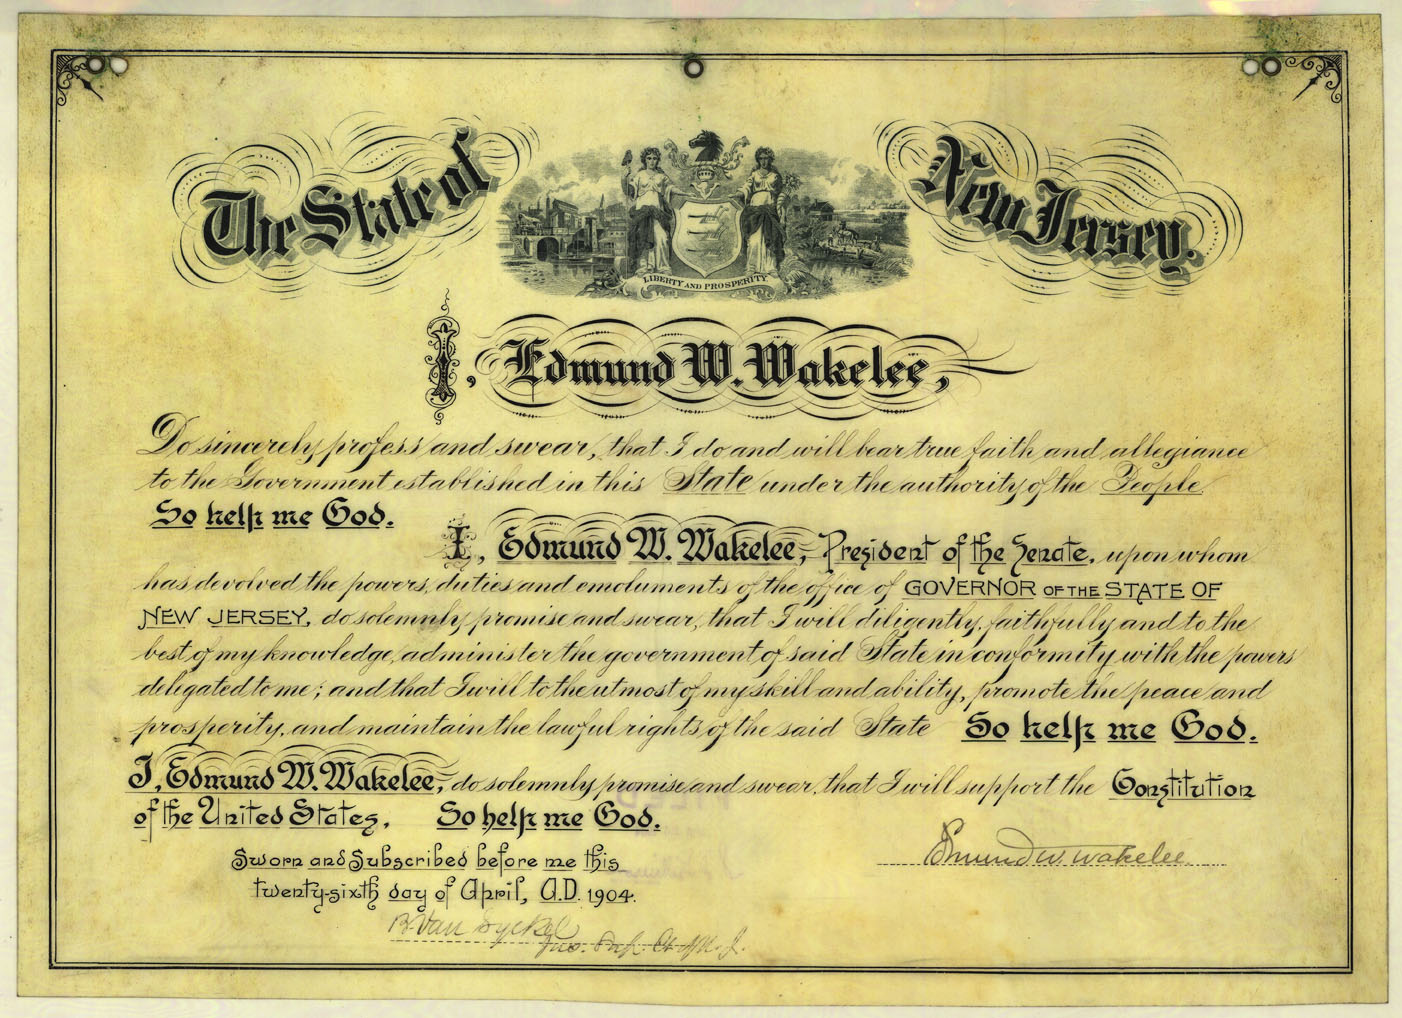 The State of New Jersey.
LIBERTY AND PROSPERITY
I, Edmund W. Wakelee,
Do sincerely profess and swear, that I do and will bear true faith and allegiance
to the Government established in this State under the authority of the People.
So help me God.
I, Edmund W. Wakelee, President of the Senate, upon whom
has devolved the powers, duties and emoluments of the office of GOVERNOR OF THE STATE OF
NEW JERSEY, do solemnly promise and swear, that I will diligently, faithfully and to the
best of my knowledge, administer the government of said State in conformity with the powers
delegated to me; and that I will to the utmost of my skill and ability, promote the peace and
prosperity, and maintain the lawful rights of the said State So help me God.
I, Edmund W. Wakelee, do solemnly promise and swear, that I will support the Constitution
of the United States, So help me God.
Edmund W. Wakelee
Sworn and Subscribed before me this
twenty-sixth day of April, A.D. 1904.
B. Van Syckel
Jus. Sup. Ct of N. J.